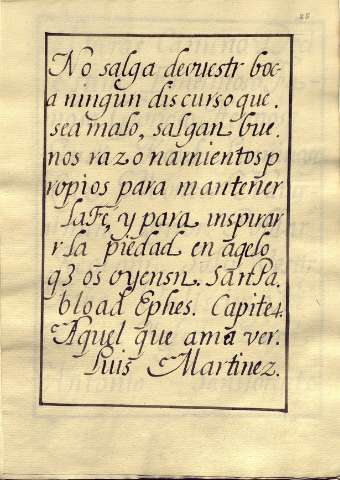 28
No salga devuestr boc-
a ningun discurso que.
sea malo, salgan bue.
nos razonamientos p
ropios para mantener
la Fe, y para inspirar
r la piedad en aqelo
q3 os oyensn. San Pa.
blo ad Ephes. Capite 4.
Aquel que ama ver.
Luis Martinez.